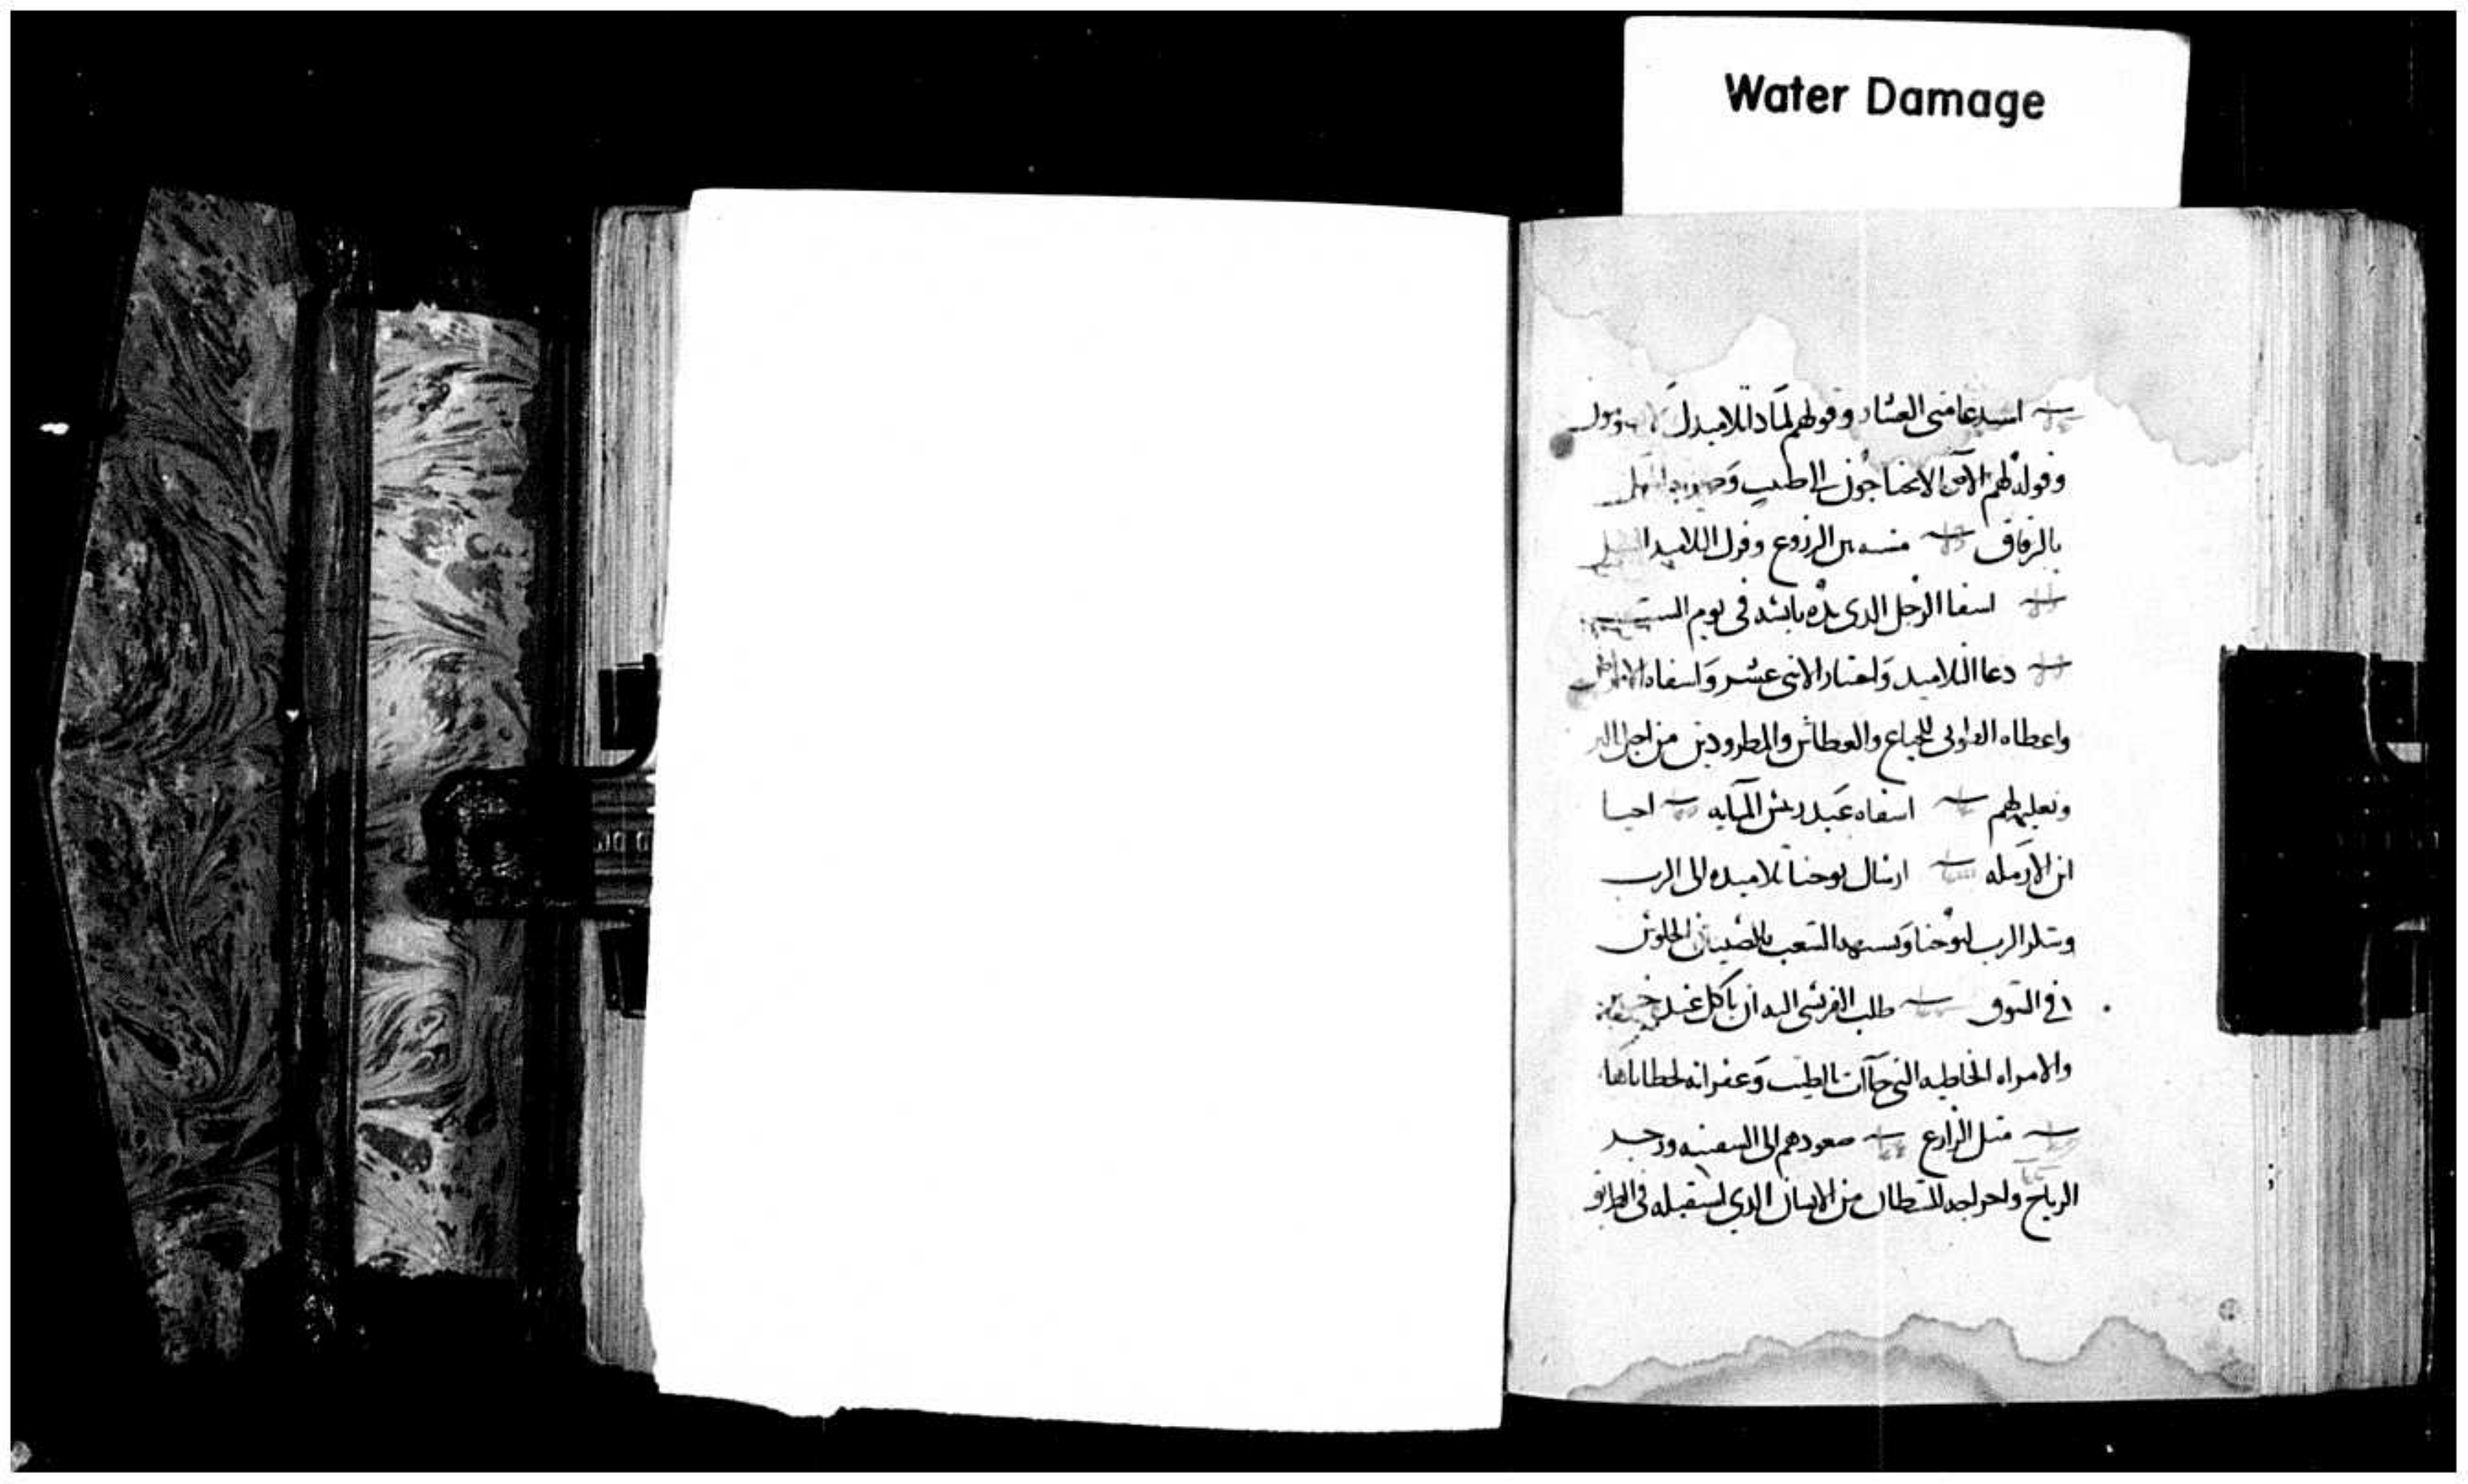 Water Damage
استدعا متى العشار وقولهم لماذا تلاميدك
وقوله لهم الاصحا لا يحتاجون الى طبيب
بالزقاق مشيه بين الزروع وفرك التلاميد السنبل
اسفا الرجل الدى يده يابسه فى يوم السبت
دعا التلاميد واختيار الاتنى عشر واسفاه
واعطاه الطوبى للجياع والعطاش والمطرودين من اجل البر
وتعليمهم اسفاه عبد رييس المايه احيا
ابن الارمله ارسال يوحنا تلاميده الى الرب
وشكر الرب ليوحنا وتشبيه الشعب بالصبيان الجلوس
فى السوق طلب الفريسى اليه ان ياكل عنده خبز
والامراه الخاطيه التى جاات بالطيب وغفرانه لخطاياها
متل الزارع صعودهم الى السفينه وزجر
الرياح واخراجه للشيطان من الانسان الدي استقبله فى الطريق